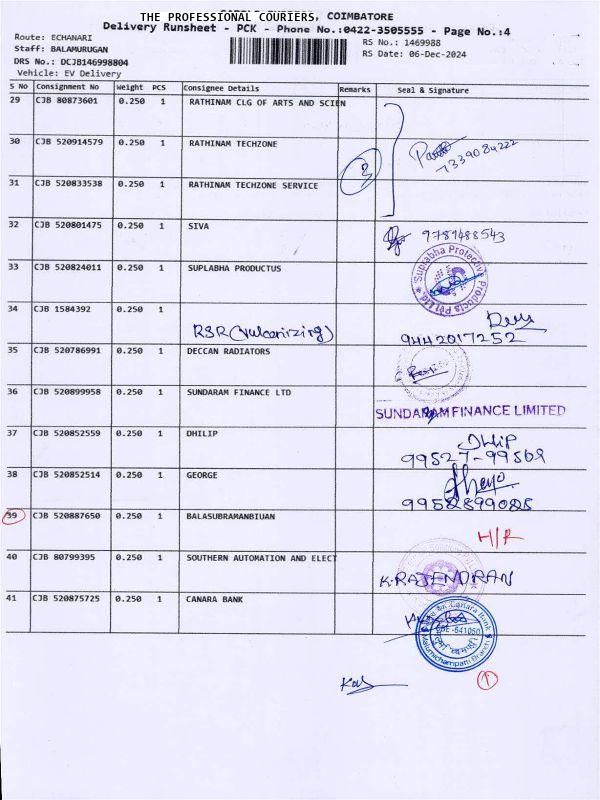 THE PROFESSIONAL COURIERS, COIMBATORE
Delivery Runsheet - PCK - Phone No.:0422-3505555 - Page No.:4
Route: ECHANARI
RS No.: 1469988
Staff: BALAMURUGAN
RS Date: 06-Dec-2024
DRS No.: DCJB146998804
Vehicle: EV Delivery
S No Consignment No Weight PCS Consignee Details Remarks Seal & Signature
29 CJB 80873601 0.250 1 RATHINAM CLG OF ARTS AND SCIEN
30 CJB 520914579 0.250 1 RATHINAM TECHZONE
7339084222
31 CJB 520833538 0.250 1 RATHINAM TECHZONE SERVICE
32 CJB 520801475 0.250 1 SIVA 9789488543
33 CJB 520824011 0.250 1 SUPLABHA PRODUCTUS Suplabha Protective Products Pvt Ltd.
34 CJB 1584392 0.250 1
RSR (vulcanizing) 9442017252
35 CJB 520786991 0.250 1 DECCAN RADIATORS
36 CJB 520899958 0.250 1 SUNDARAM FINANCE LTD
SUNDARAM FINANCE LIMITED
37 CJB 520852559 0.250 1 DHILIP Dhilip
99527-99569
38 CJB 520852514 0.250 1 GEORGE
9952899085
39 CJB 520887650 0.250 1 BALASUBRAMANBIUAN
H/R
40 CJB 80799395 0.250 1 SOUTHERN AUTOMATION AND ELECT
K.RAJENDRAN
41 CJB 520875725 0.250 1 CANARA BANK
Canara Bank
641050
Malumichampatti Branch